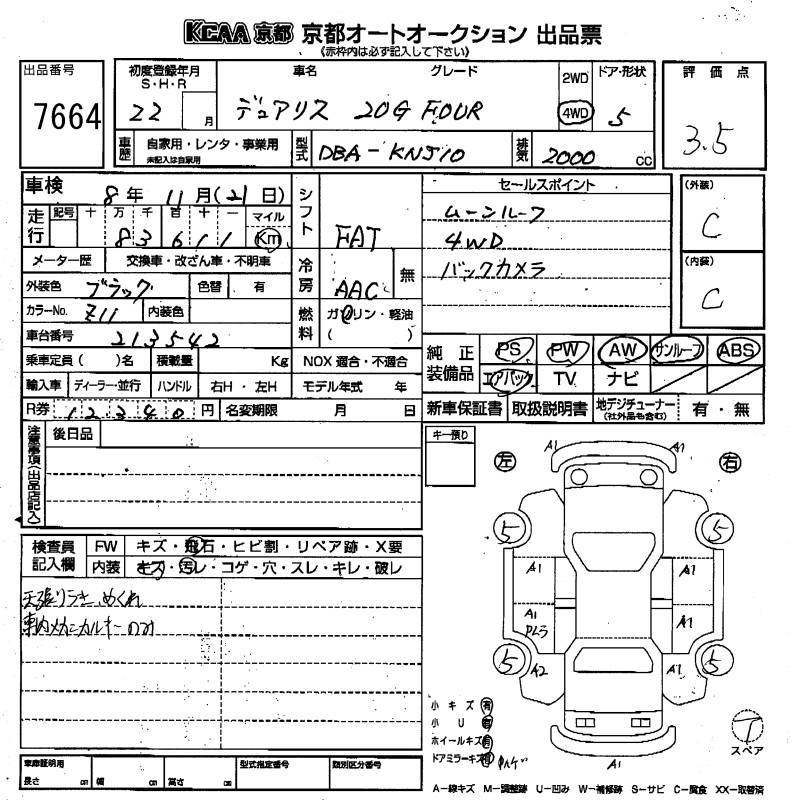 KCAA 京都 京都オートオークション 出品票
(赤枠内は必ず記入して下さい)
出品番号
7664
初度登録年月
S・H・R
22 月
車名 グレード
デュアリス 20G FOUR
2WD
4WD
ドア・形状
5
評価点
3.5
車歴
自家用・レンタ・事業用
未記入は自家用
型式
DBA-KNJ10
排気
2000 CC
車検
8年 11月(21日)
走行
記号 十 万 千 百 十 一 マイル
8 3 6 1 1 Km
メーター歴 交換車・改ざん車・不明車
外装色 ブラック 色替 有
カラーNo. Z11 内装色
車台番号 213542
乗車定員( )名 積載量 Kg
輸入車 ディーラー・並行 ハンドル 右H・左H
R券 12340円 名変期限 月 日
シフト
FAT
冷房
AAC 無
燃料
ガソリン・軽油
( )
NOX 適合・不適合
モデル年式 年
セールスポイント
ムーンルーフ
4WD
バックカメラ
(外装)
C
(内装)
C
純正装備品
PS PW AW サンルーフ ABS
エアバック TV ナビ
新車保証書 取扱説明書 地デジチューナー
(社外品も含む) 有・無
注意事項(出品店記入)
後日品
キー預り
検査員記入欄
FW キズ・飛石・ヒビ割・リペア跡・X要
内装 キズ・汚レ・コゲ・穴・スレ・キレ・破レ
天張りうき、めくれ
車内メカニカルキーのみ
左 右
A1 A1
5 5
A1 A1
A1 A1
5 5
A2 A1
A1
小キズ 有
小U 有
ホイールキズ 有
ドアミラーキズ 有
スペア
車庫証明用
長さ cm 幅 cm 高さ cm
型式指定番号
類別区分番号
A-線キズ M-調整跡 U-凹み W-補修跡 S-サビ C-腐食 XX-取替済